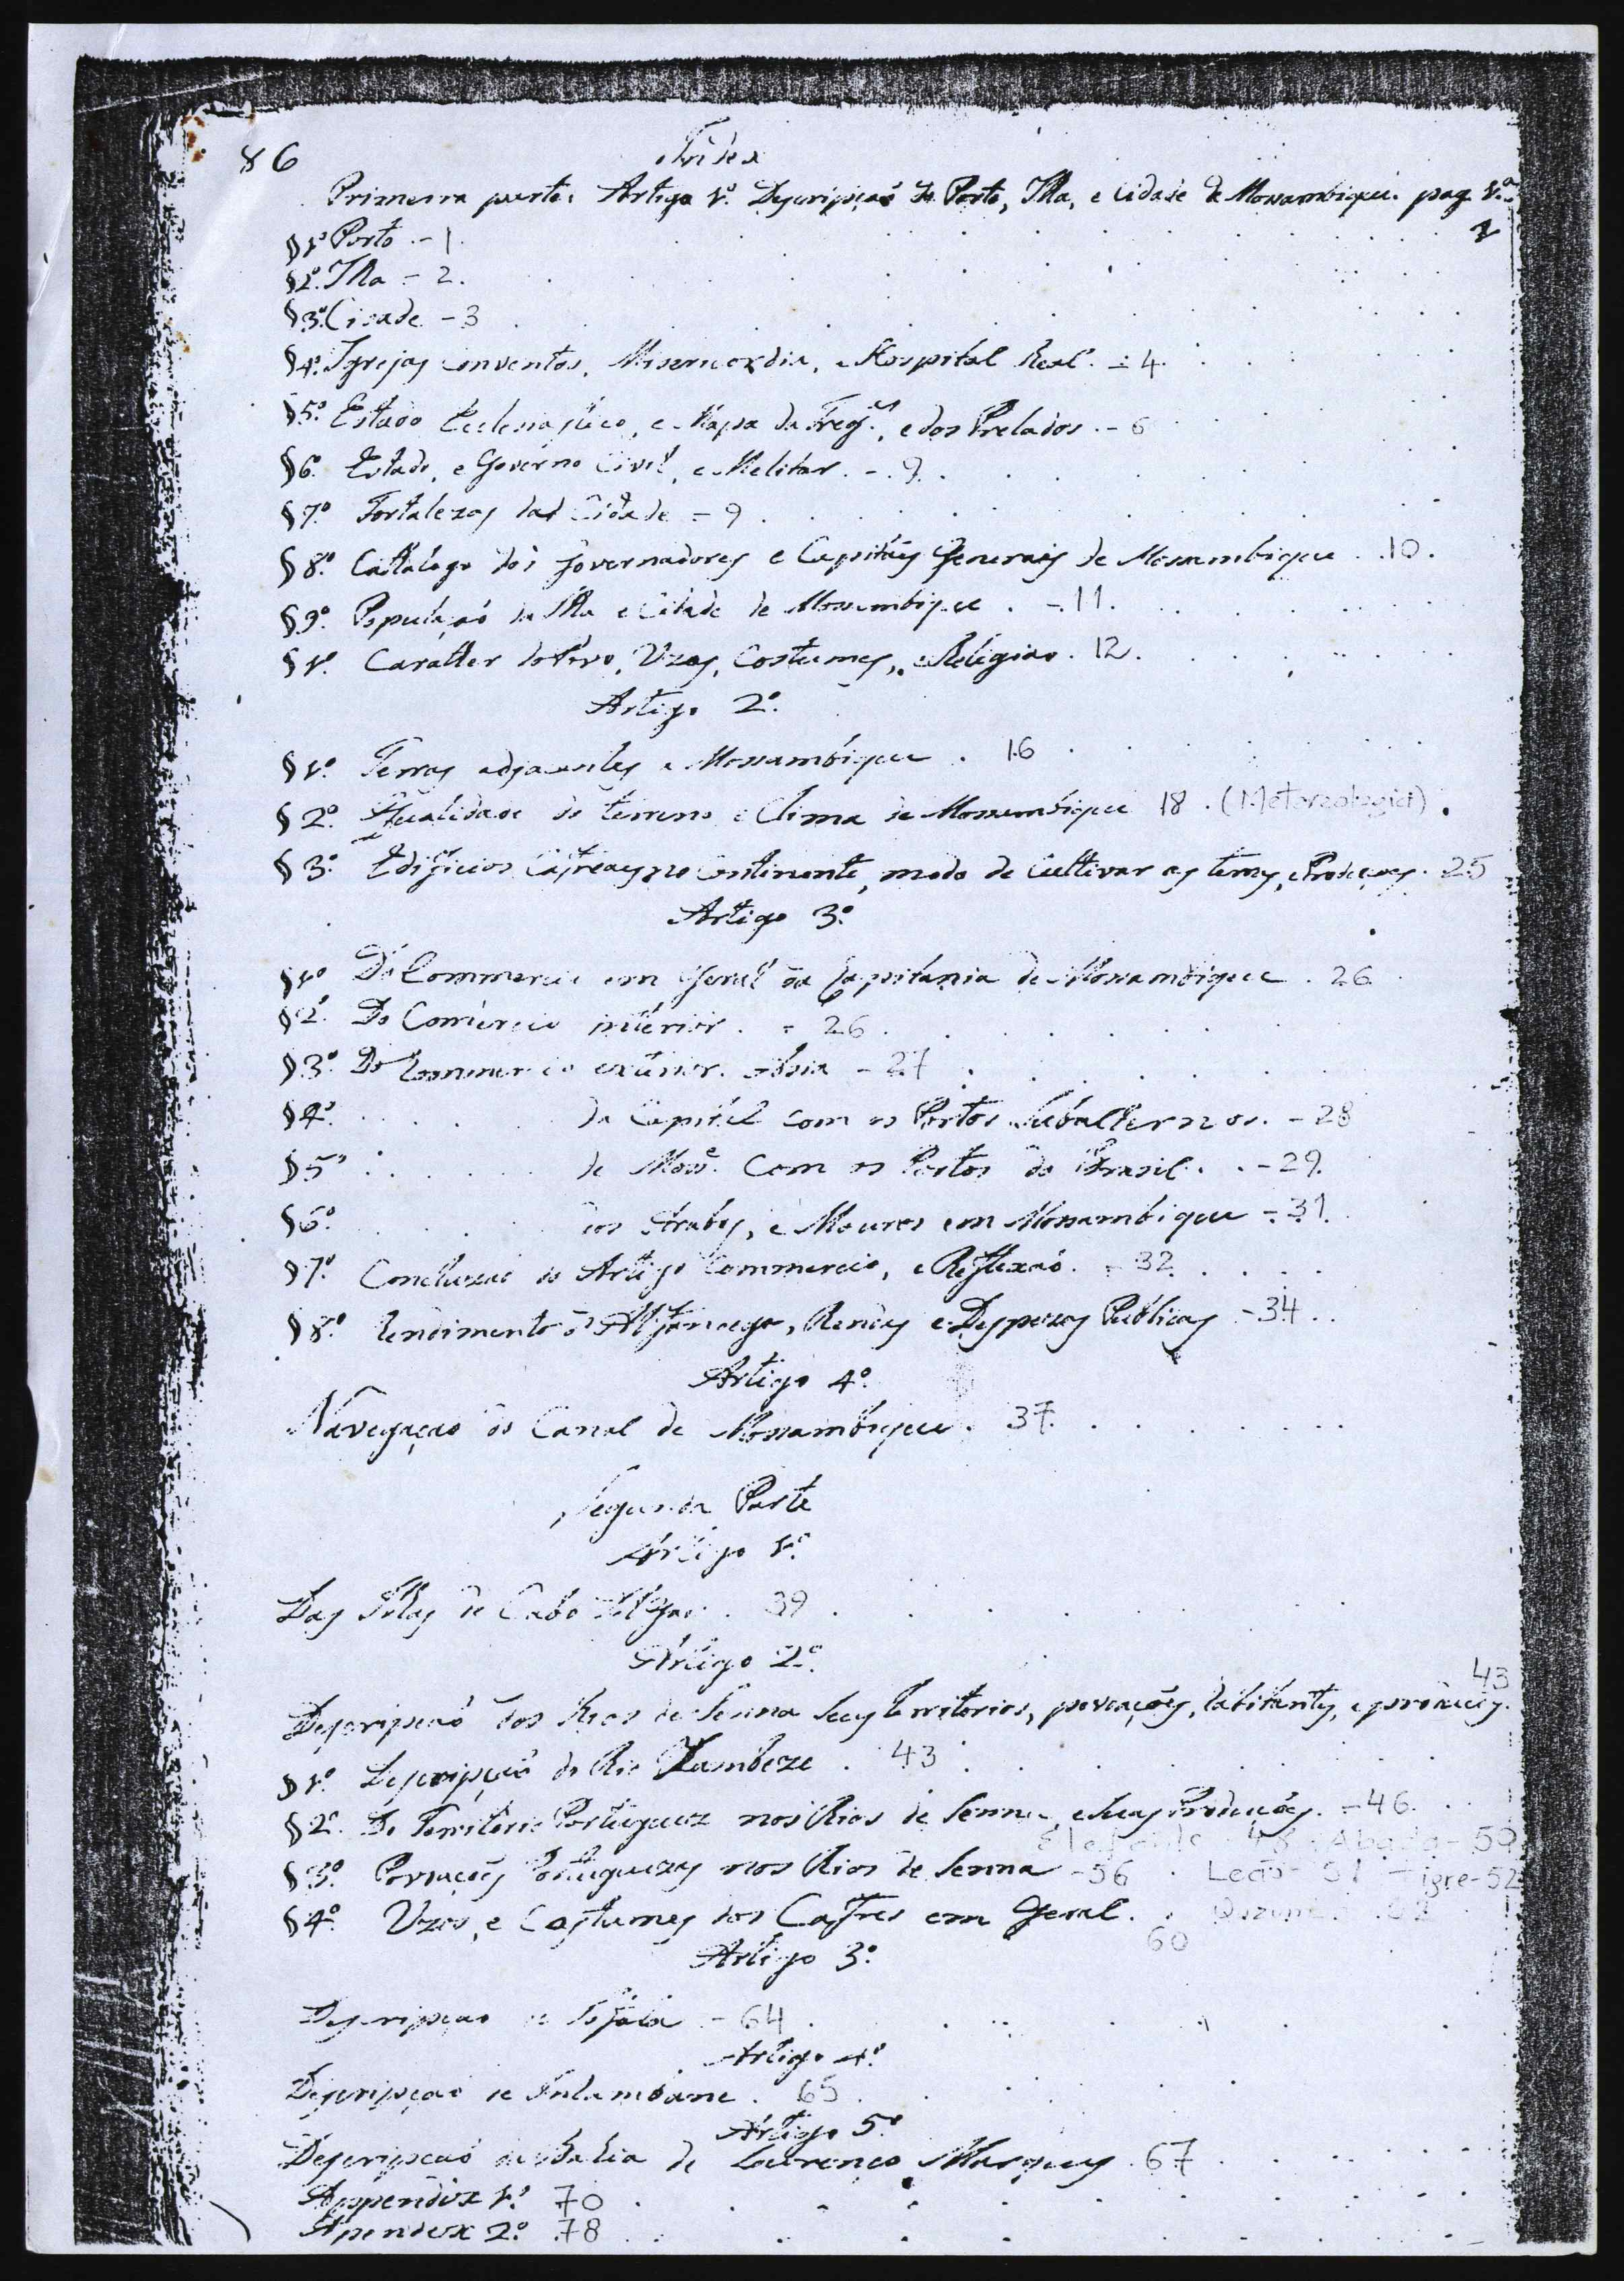 86
Index
Primeira parte. Artigo 1.º Descripçaõ do Porto, Ilha, e Cidade de Mossambique. pag. 1.ª
§1º Porto. - 1.
§2º. Ilha - 2.
§3º. Cidade - 3
§4º. Igrejas conventos, Misericordia, e Hospital Real. - 4.
§5º. Estado Ecclesiastico, e Mapa da Freg.ª, e dos Prelados. - 6
§6º. Estado, e Governo Civil, e Melitar. - 9.
§7º. Fortalezas da Cidade - 9.
§8º. Cathálogo dos Governadores e Capitães Generais de Mossambique. 10.
§9º. Populaçaõ da Ilha e Cidade de Mossambique. - 11.
§1º. Caracter do Povo, Uzos, Costumes, e Religiao. 12.
Artigo 2º.
§1º. Terras adjacentes a Mossambique. 16
§2º. Qualidade do terreno e Clima de Mossambique 18. (Meteorologia).
§3º. Edificios Cafreaes no Continente, modo de Cultivar as terras, e Producções. 25
Artigo 3º.
§1º Do Commercio em Geral da Capitania de Mossambique. 26
§2º. Do Comércio intérior. - 26.
§3º. Do Commercio extérior. Asia - 27.
§4º. da Capital com os Portos Subalternos. - 28
§5º de Mosse. Com os Portos do Brasil. - 29.
§6º. dos Arabes, e Mouros em Mossambique - 31.
§7º. Concluzaõ do Artigo Commercio, e Reflexaõ. - 32
§8º. Rendimento d'Alfandega, Rendas e Despezas Publicas - 34.
Artigo 4º.
Navegaçaõ do Canal de Mossambique. 37.
Segunda Parte
Artigo 1º.
Das Ilhas de Cabo Delgado. 39.
Artigo 2º.
43
Descripçaõ dos Rios de Senna seus territorios, povoações, habitantes, e producções.
§1º. Descripçaõ do Rio Zambeze. 43
§2º. Do Território Portuguez nos Rios de Senna, e suas Producções. - 46.
Elefante 48. Abada - 50
§3º. Povoações Portuguezas nos Rios de Senna - 56. Leão - 51 Tigre - 52
§4º. Uzos, e Costumes dos Cafres em Geral.
60
Artigo 3º.
Descripçaõ de Sofála - 64.
Artigo 4º.
Descripçaõ de Inhambane. 65.
Artigo 5º
Descripçaõ da Bahia de Lourenço Marques. 67.
Appendix 1º. 70.
Apendix 2º. 78.